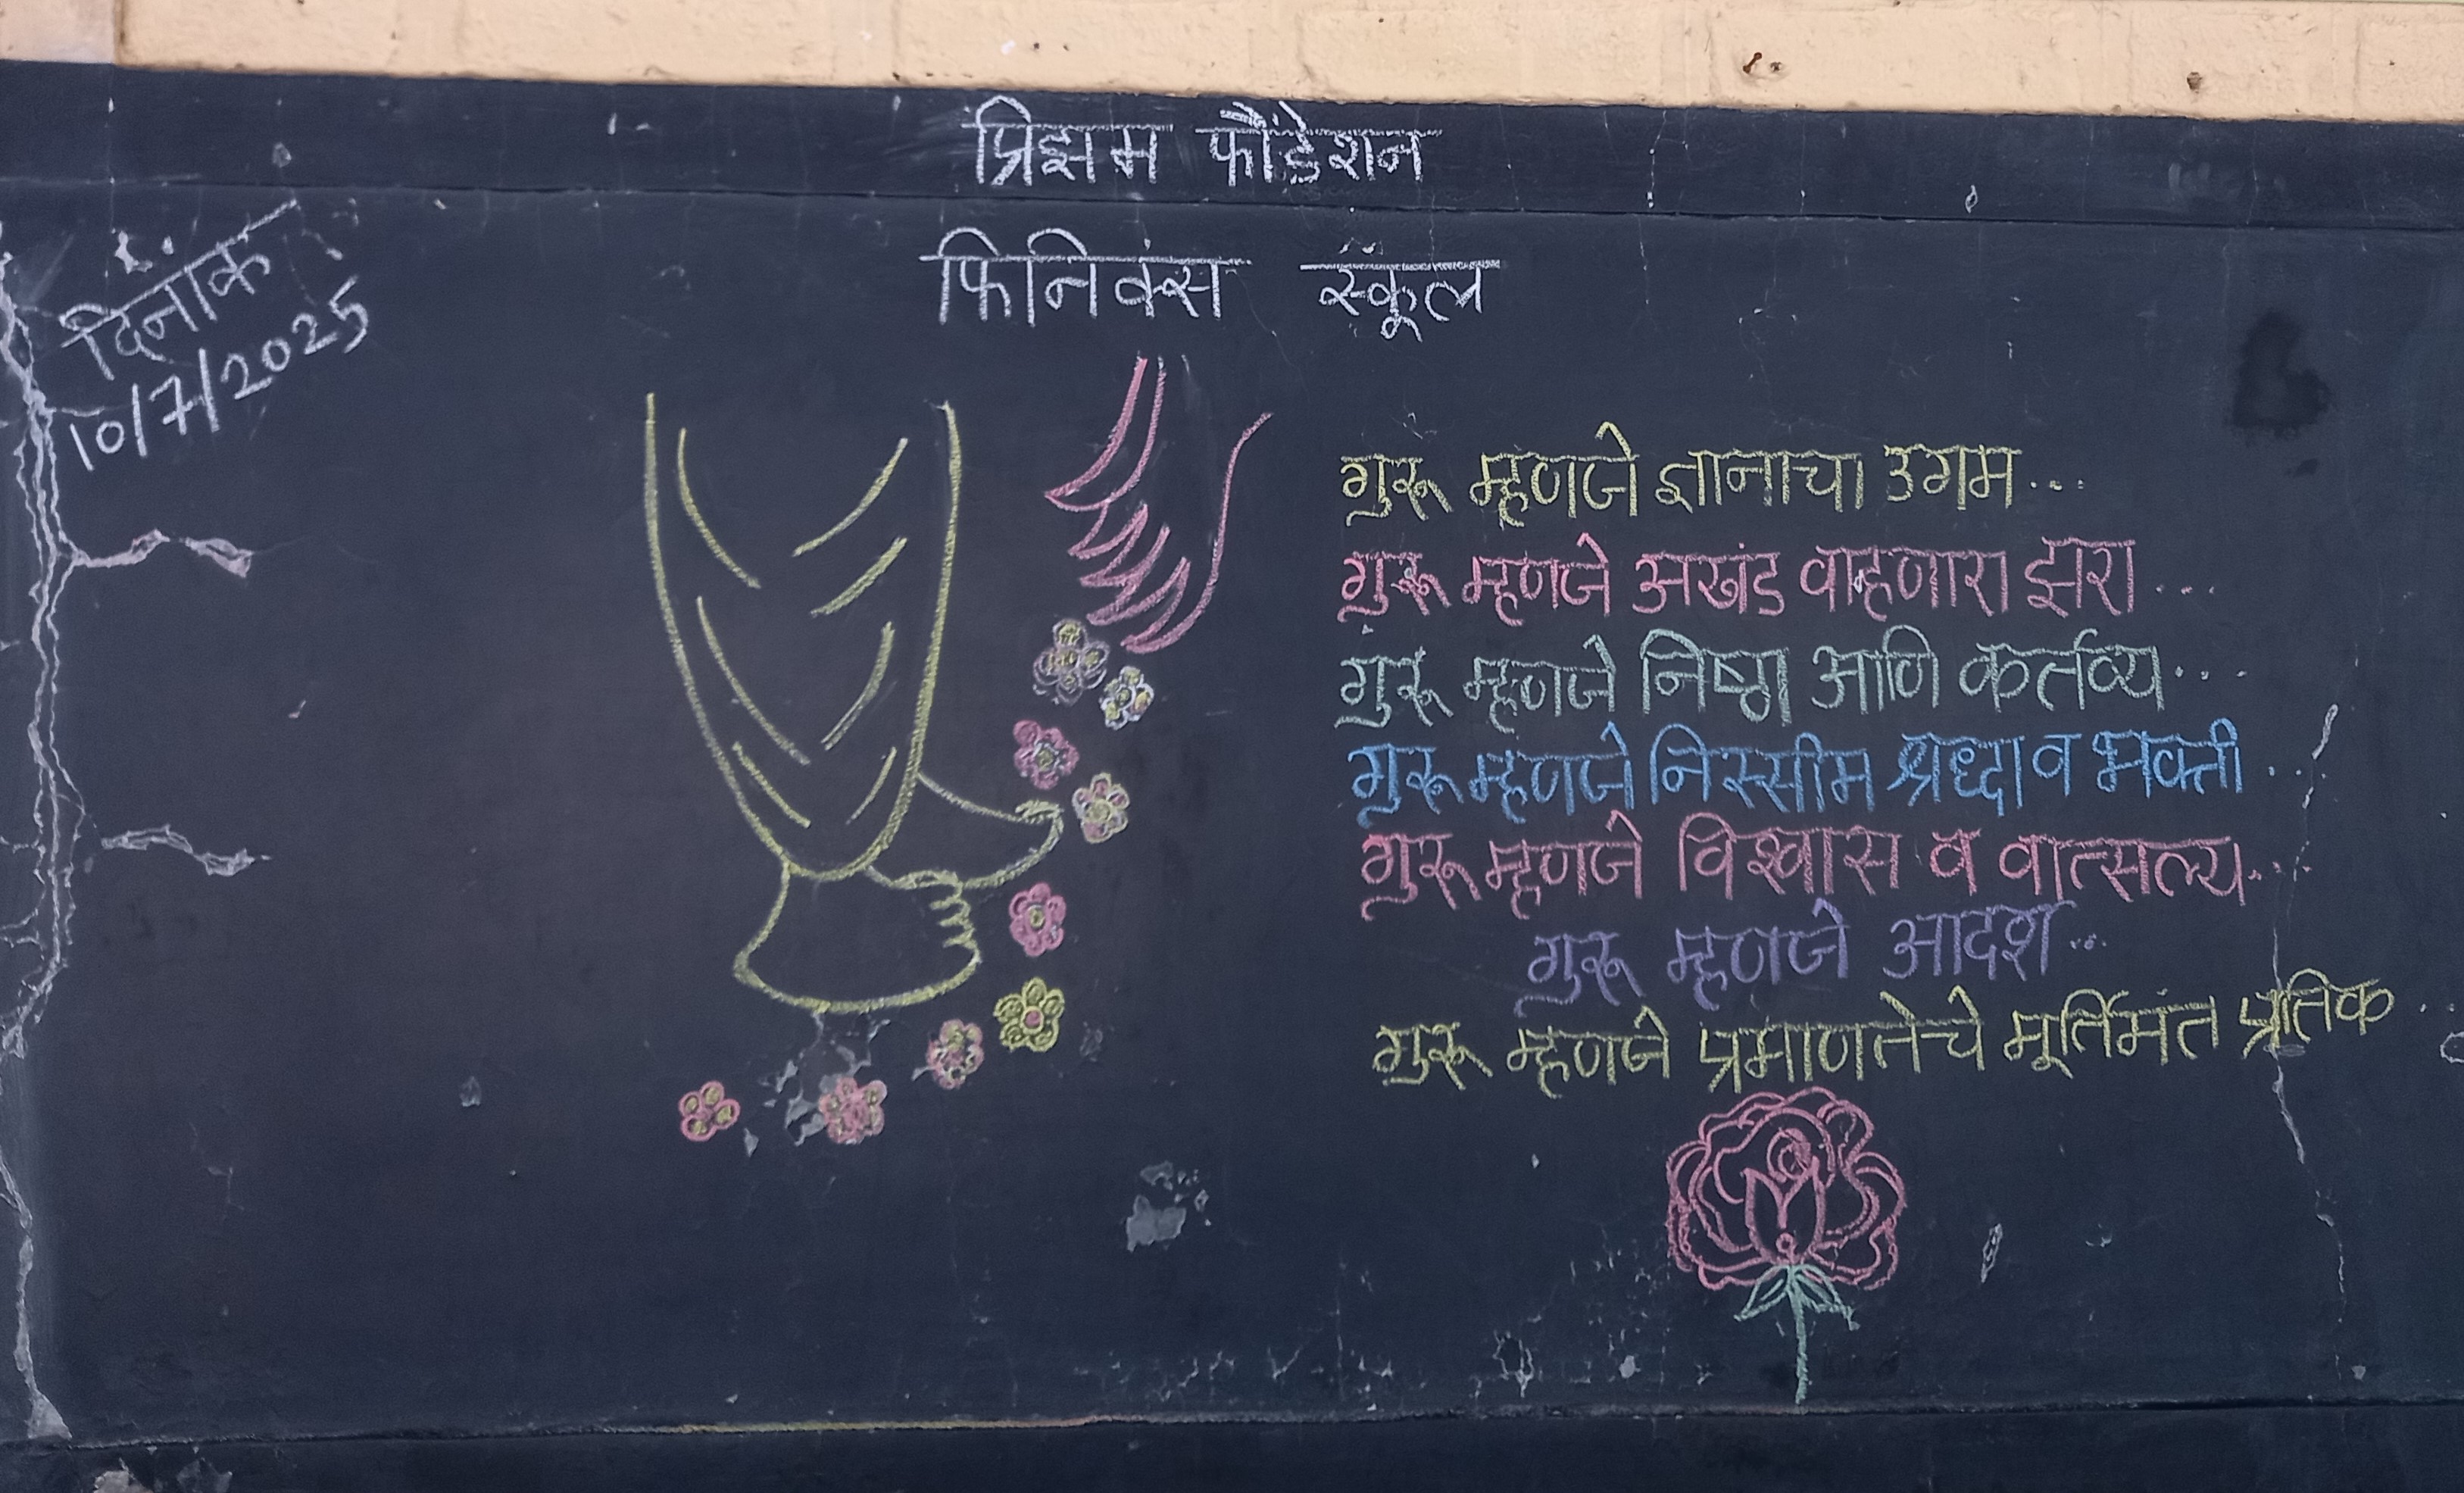 प्रिझम फौंडेशन
फिनिक्स स्कूल
दिनांक
10/7/2025
गुरू म्हणजे ज्ञानाचा उगम...
गुरू म्हणजे अखंड वाहणारा झरा....
गुरू म्हणजे निष्ठा आणि कर्तव्य...
गुरू म्हणजे निस्सीम श्रध्दा व भक्ती...
गुरू म्हणजे विश्वास व वात्सल्य...
गुरू म्हणजे आदर्श...
गुरू म्हणजे प्रमाणतेचे मूर्तिमंत प्रतिक..